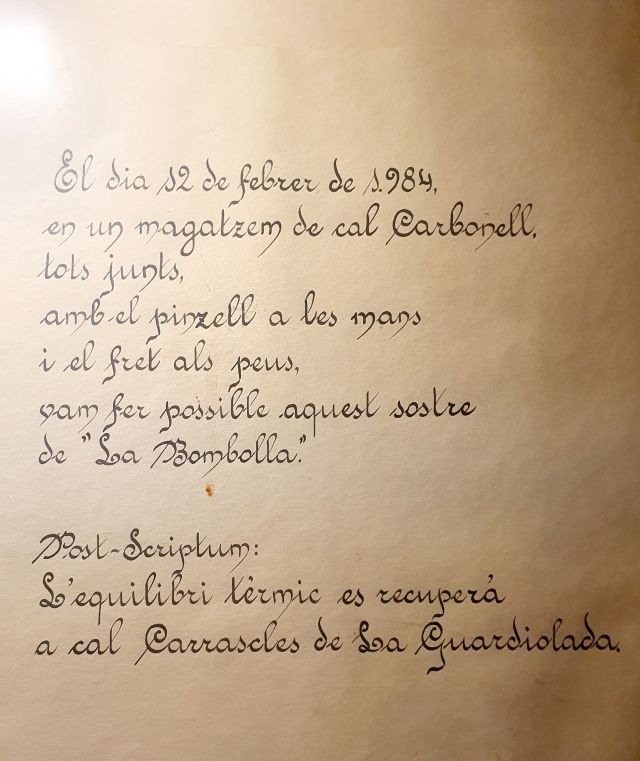 El dia 12 de febrer de 1.984,
en un magatzem de cal Carbonell,
tots junts,
amb el pinzell a les mans
i el fret als peus,
vam fer possible aquest sostre
de "La Bombolla."
Post-Scriptum:
L'equilibri tèrmic es recuperà
a cal Carrascles de La Guardiolada.